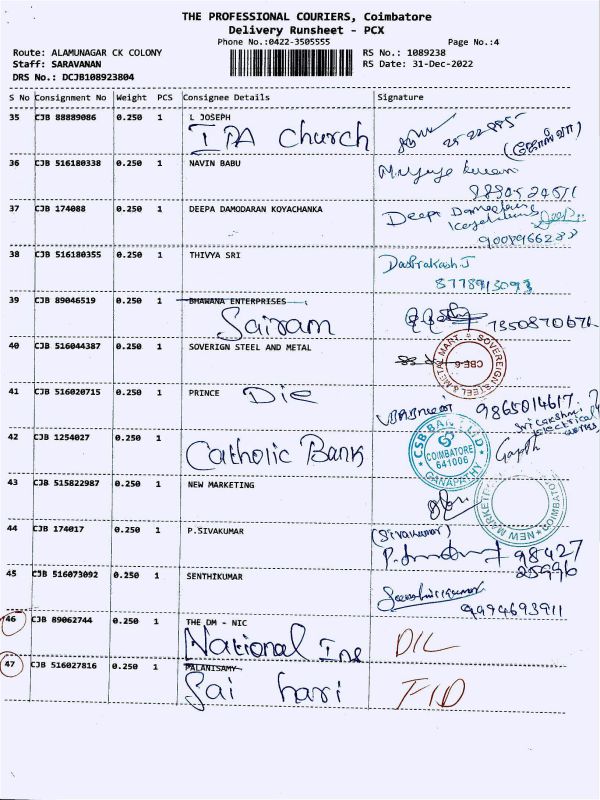 THE PROFESSIONAL COURIERS, Coimbatore
Delivery Runsheet - PCX
Phone No.:0422-3505555 Page No.:4
Route: ALAMUNAGAR CK COLONY RS No.: 1089238
Staff: SARAVANAN RS Date: 31-Dec-2022
DRS No.: DCJB108923804
S No Consignment No Weight PCS Consignee Details Signature
35 CJB 88889086 0.250 1 L JOSEPH
IPA Church
36 CJB 516180338 0.250 1 NAVIN BABU
37 CJB 174088 0.250 1 DEEPA DAMODARAN KOYACHANKA Deepa
9008966283
38 CJB 516180355 0.250 1 THIVYA SRI DasPrakash.J
8778913093
39 CJB 89046519 0.250 1 BHAWANA ENTERPRISES
Sairam 7350870674
40 CJB 516044387 0.250 1 SOVERIGN STEEL AND METAL
SOVEREIGN STEEL & METAL MART CBE-6
41 CJB 516020715 0.250 1 PRINCE Die 9865014617
Sri Lakshmi Electrical works
42 CJB 1254027 0.250 1
Catholic Bank
CSB BANK LTD COIMBATORE 641006 GANAPATHY
43 CJB 515822987 0.250 1 NEW MARKETING
NEW MARKETING COIMBATORE
44 CJB 174017 0.250 1 P.SIVAKUMAR (Sivakumar)
98427
25996
45 CJB 516073092 0.250 1 SENTHIKUMAR
9994693911
46 CJB 89062744 0.250 1 THE DM - NIC
National Ine DIL
47 CJB 516027816 0.250 1 PALANISAMY
Sai hari FID